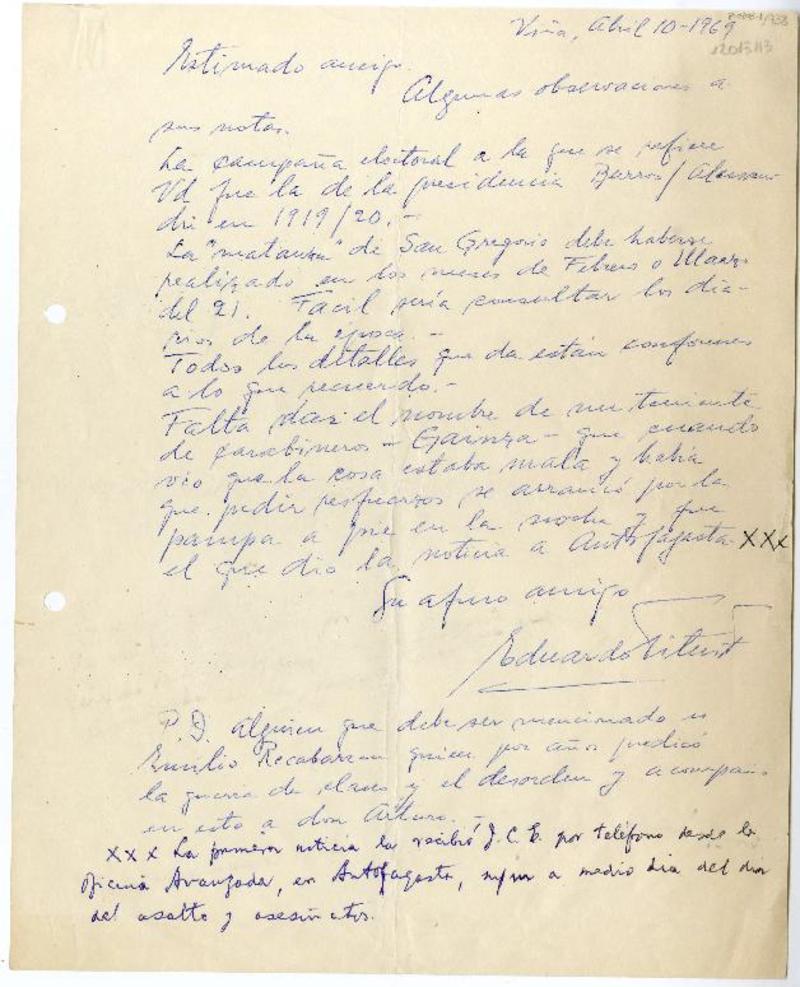 Viña, Abril 10-1969
Estimado amigo.
Algunas observaciones a
sus notas.
La campaña electoral a la que se refiere
Vd fue la de la presidencia Barros/Alessan-
dri en 1919/20.-
La "matanza" de San Gregorio debe haberse
realizado en los meses de Febrero o Marzo
del 21. Fácil sería consultar los dia-
rios de la época.-
Todos los detalles que da están conformes
a lo que recuerdo.-
Falta dar el nombre de un teniente
de carabineros - Gainza - que cuando
vio que la cosa estaba mala y había
que pedir refuerzos se arrancó por la
pampa a pie en la noche y fue
el que dio la noticia a Antofagasta XXX
Su afmo amigo
Eduardo
P.D. Alguien que debe ser mencionado es
Emilio Recabarren quien por años predicó
la guerra de clases y el desorden y acompañó
en esto a don Arturo.-
XXX La primera noticia la recibió J.C.E. por teléfono desde la
oficina Avanzada, en Antofagasta, a medio dia del dia
del asalto y asesinatos.